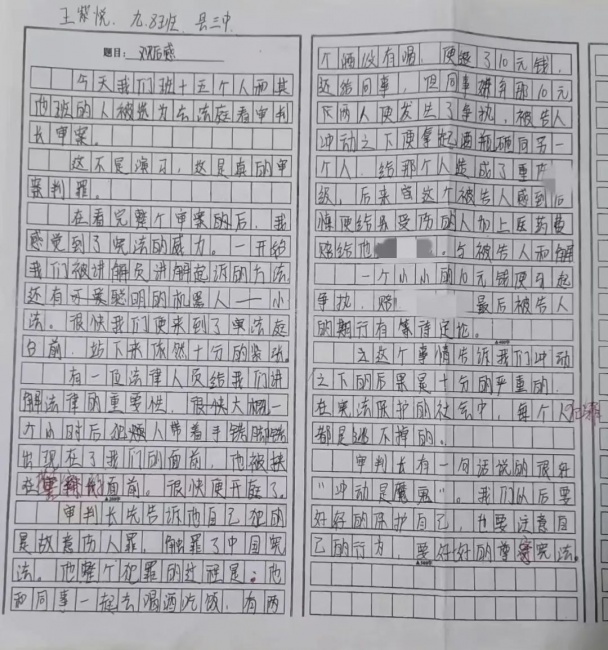 王紫悦. 九.83班. 县三中.
题目：观后感
今天我们班十五个人和其
他班的人被选为去法庭看审判
长审案。
这不是演习，这是真的审
案判罪。
在看完整个审案的后，我
感觉到了宪法的威力。一开始
我们被讲解员讲解起诉的方法
还有聪明的机器人——小
法。很快我们便来到了审法庭
台前，站下来依然十分的紧张。
有一位法律人员给我们讲
解法律的重要性，很快大概一
个小时后犯人带着手铐脚铐
出现在了我们的面前，他被挟
在面前。很快便开庭了。
审判长先告诉他自己犯的
是故意伤人罪，触罪了中国宪
法。他整个犯罪的过程是：他
和同事一起去喝酒吃饭，有两
个酒没有喝，便退了10元钱，
还给同事，但同事嫌弃那10元
下两人便发生了争执，被告人
冲动之下便拿起酒瓶砸向另一
个人，给那个人造成了重
级，后来这个被告人感到
悔便给受伤的人加上医药费
赔给他，被告人和解
一个小小的10元钱便引起
争执，赔最后被告人
的期行有等待定论。
这个事情告诉我们冲动
之下的后果是十分的严重的，
在宪法保护的社会中，每个人犯罪
都是逃不掉的。
审判长有一句话说的很好
“冲动是魔鬼”。我们以后要
好好的保护自己，也要注意自
己的行为，要好好的尊守宪法。